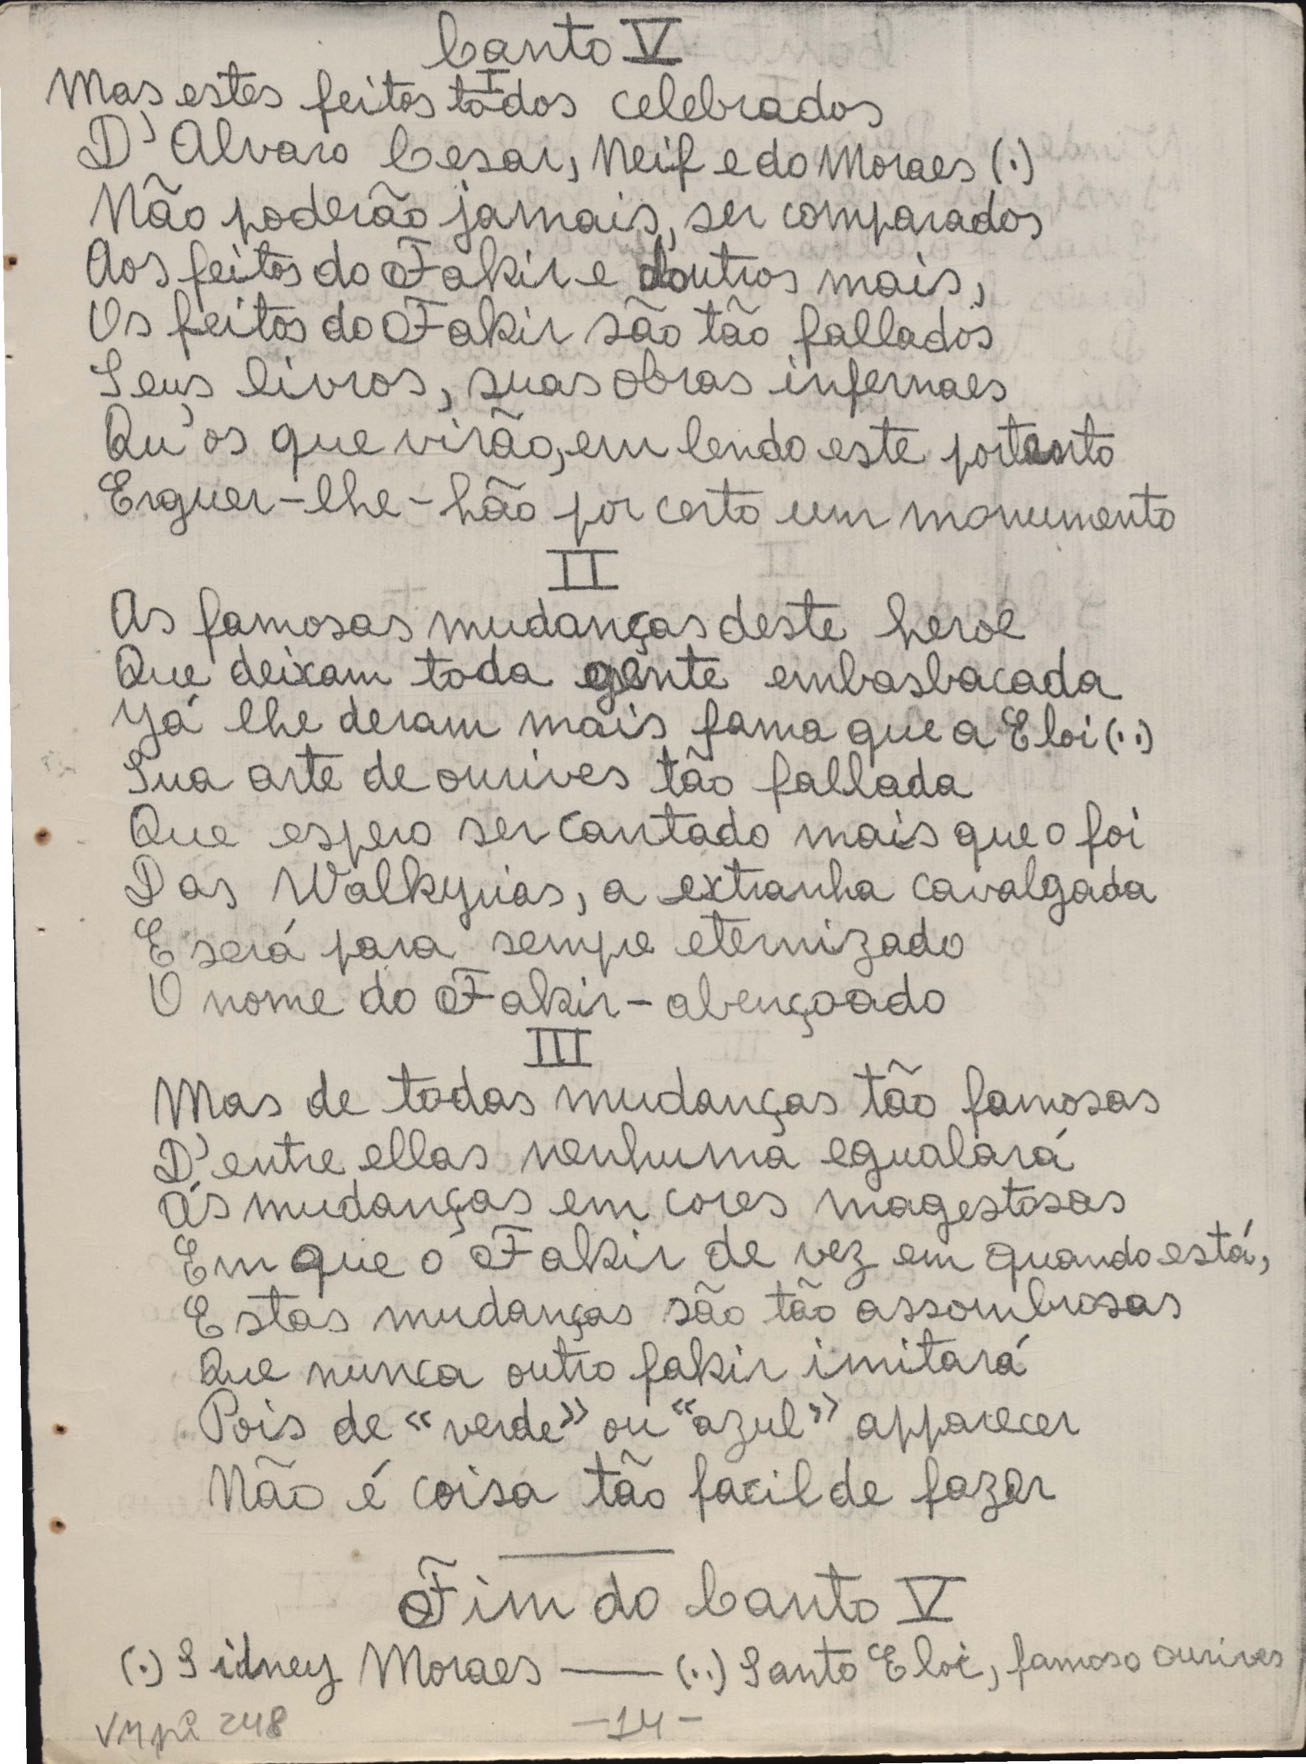 Canto V
I
Mas estes feitos todos celebrados
D'Alvaro Cesar, Neif e do Moraes (.)
Não poderão jamais, ser comparados
Aos feitos do Fakir e doutros mais,
Os feitos do Fakir são tão fallados
Seus livros, suas obras infernaes
Qu'os que virão, em lendo este portento
Erguer-lhe-hão por certo um monumento
II
As famosas mudanças deste heroe
Que deixam toda gente embasbacada
Já lhe deram mais fama que a Eloi (..)
Sua arte de ourives tão fallada
Que espero ser cantado mais que o foi
Das Walkyrias, a extranha cavalgada
E será para sempre eternizado
O nome do Fakir-abençoado
III
Mas de todas mudanças tão famosas
D'entre ellas nenhuma egualará
Ás mudanças em cores magestosas
Em que o Fakir de vez em quando está,
Estas mudanças são tão assombrosas
Que nunca outro fakir imitará
Pois de «verde» ou "azul" apparecer
Não é coisa tão facil de fazer
Fim do Canto V
(.) Sidney Moraes — (..) Santo Eloi, famoso ourives
248
-14-